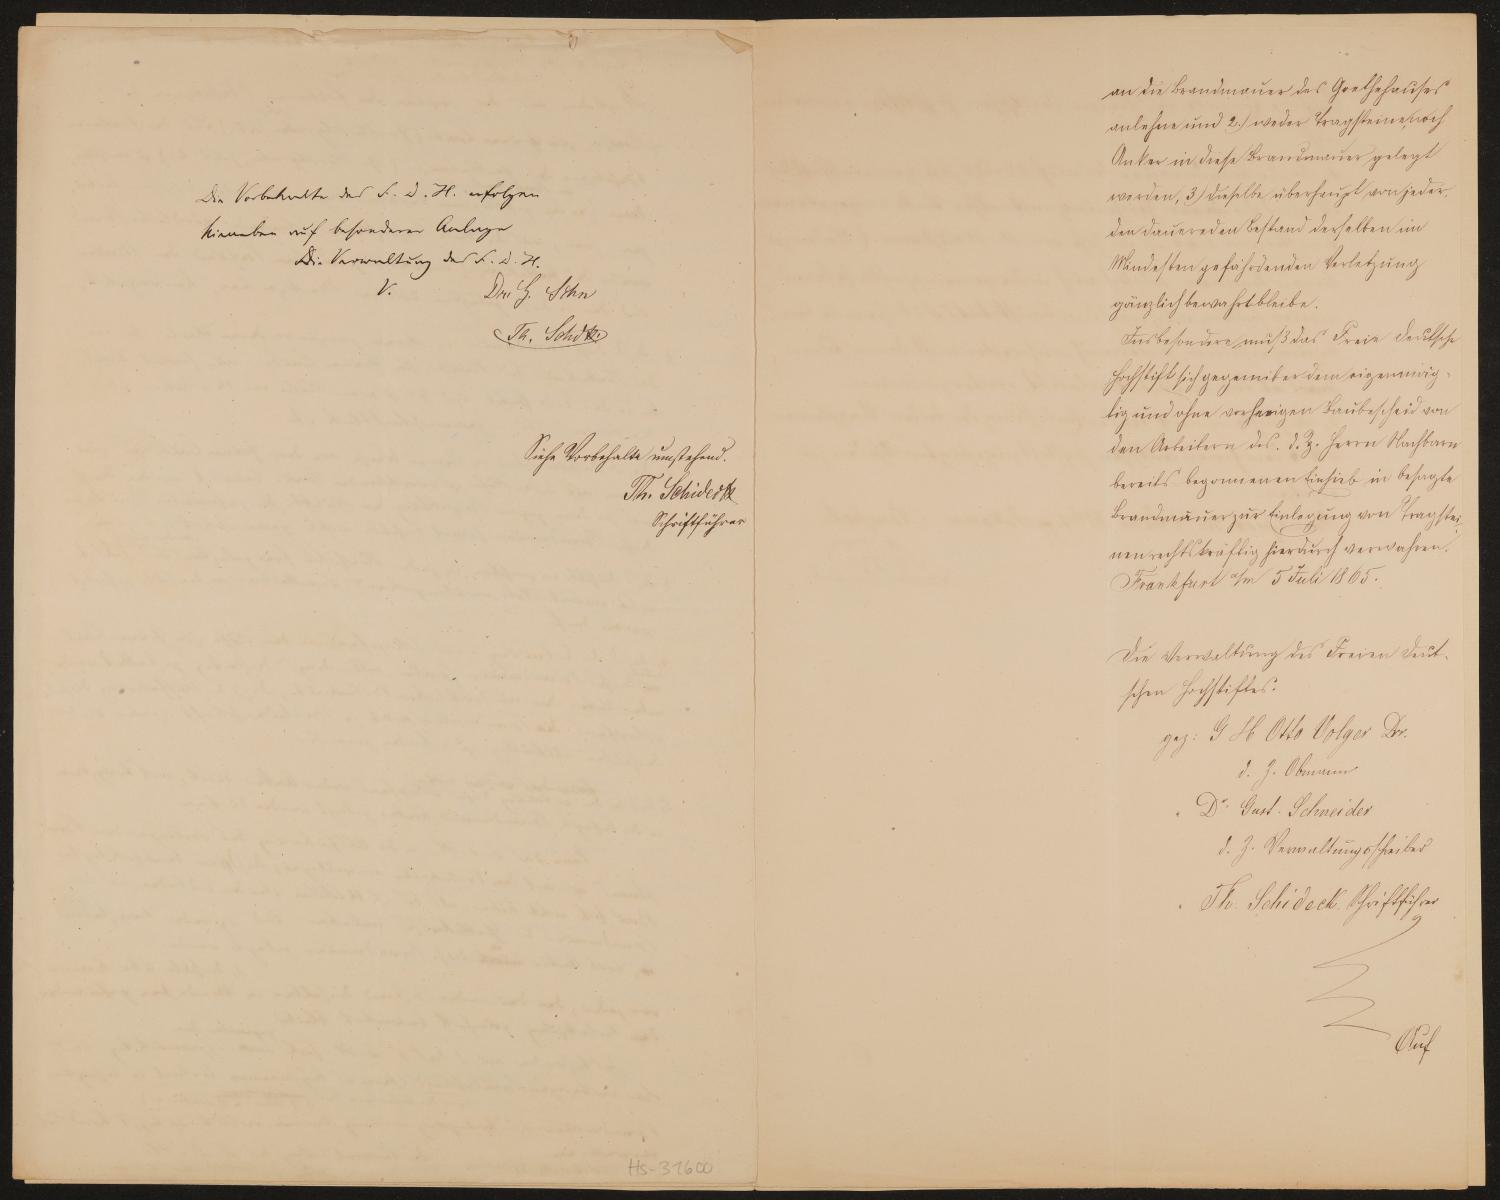 Die Vorbehalte des F. D. H. erfolgen
hieneben auf besonderer Anlage
Die Verwaltung des F. D. H.
V.
Dr. G.
Th.
Siehe Vorbehalte umstehend.
Th. Schideck
Schriftführer
Hs-31600
an die Brandmauer des Goethehauses
anlehne und 2.) weder Tragsteine, noch
Anker in diese Brandmauer gelegt
werden, 3) dieselbe überhaupt von jeder,
den dauereden Bestand derselben im
Mindesten gefährdenden Verletzung
gänzlich bewahrt bleibe.
Insbesondere muß das Freie Deutsche
Hochstift sich gegenüber dem eigenmäch-
tig und ohne vorherigen Baubescheid von
den Arbeitern des d. Z. Herrn Nachbarn
bereits begonnenen Einhieb in besagte
Brandmauer zur Einlegung von Tragstei-
nen rechtskräftig hierdurch verwahren.
Frankfurt a/m 5 Juli 1865.
Die Verwaltung des Freien Deut-
schen Hochstiftes.
gez: G H Otto Volger Dr.
d. Z. Obmann
" Dr. Gust. Schneider
d. Z. Verwaltungsschreiber
" Th. Schideck. Schriftführer
Auf